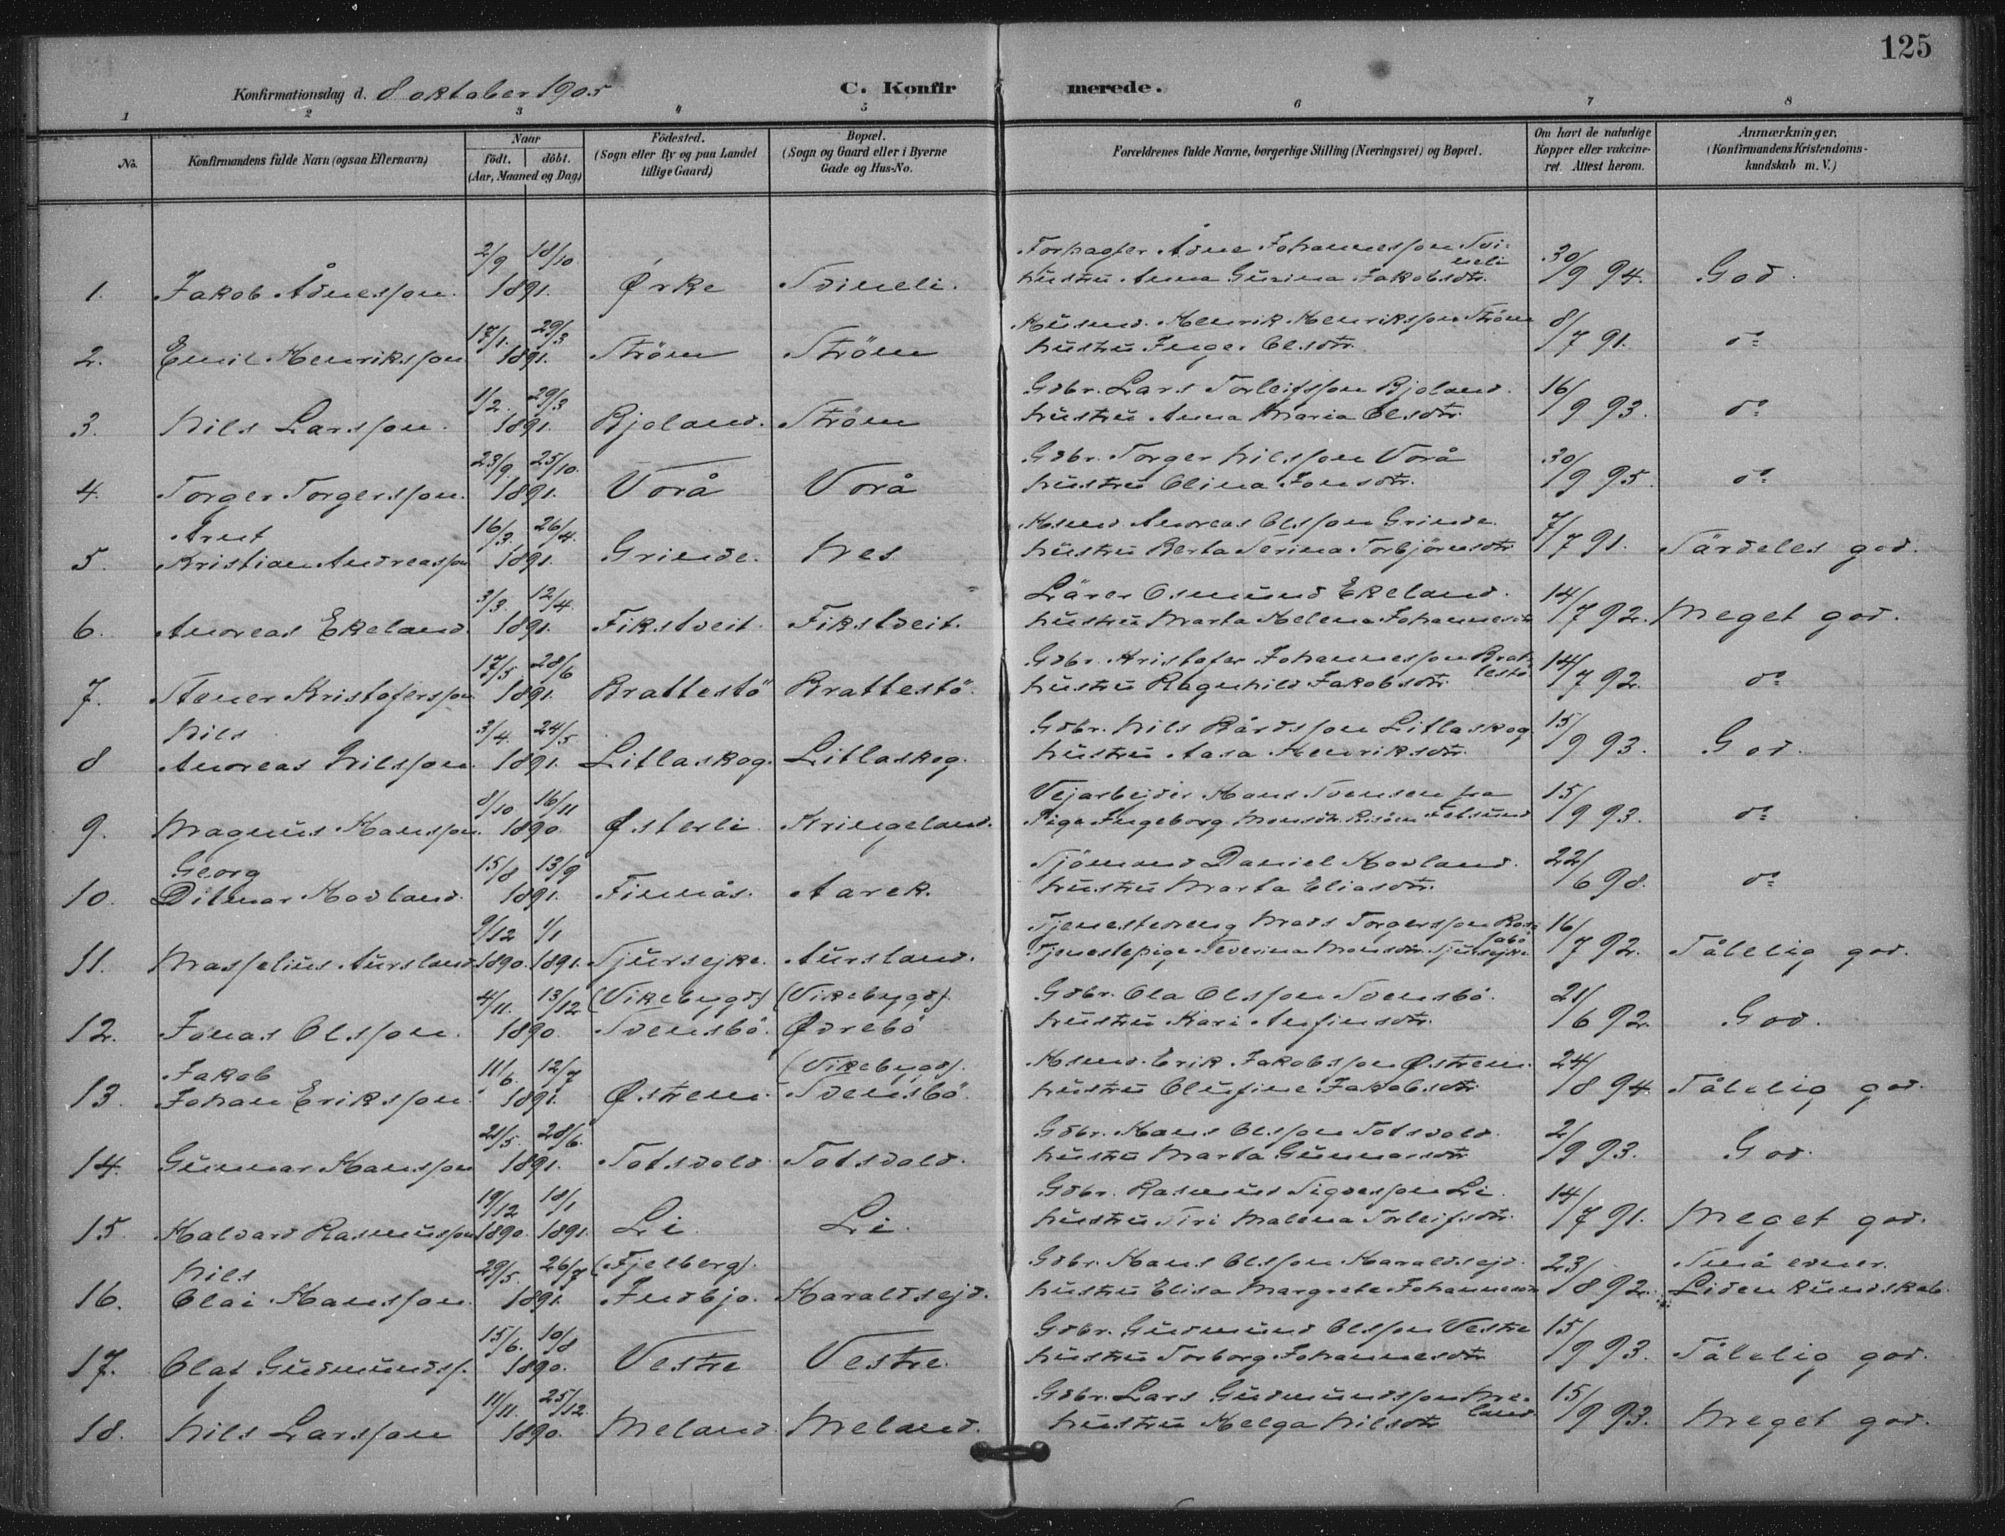 125
Konfirmationsdag d. 8 oktober 1905 C. Konfirmerede.
1 2 3 4 5 6 7 8
No. Konfirmandens fulde Navn (ogsaa Efternavn) Naar födt. döbt. (Aar, Maaned og Dag) Födested. (Sogn eller By og paa Landet tillige Gaard) Bopæl. (Sogn og Gaard eller i Byerne Gade og Hus-No. Forældrenes fulde Navne, borgerlige Stilling (Næringsvei) og Bopæl. Om havt de naturlige Kopper eller vakcineret. Attest herom. Anmærkninger. (Konfirmandens Kristendomskundskab m. V.)
2/9 18/10 Ådne Johannesson Svineli
1. Jakob Ådnesson. 1891. Ørke Svineli. hustru Anna Gurina Jakobsdtr. 30/9 94. God.
17/1. 29/3 Husmd. Henrik Henriksson Strøm
2. Emil Henriksson 1891. Strøm Strøm hustru Inger Olsdtr. 8/7 91. do
1/2. 29/3 Gdbr. Lars Torleifsson Bjoland.
3. Nils Larsson. 1891. Bjoland. Strøm hustru Anna Maria Olsdtr. 16/9 93. do
23/9 25/10. Gdbr. Torger Nilsson Vorå
4. Torger Torgersson. 1891. Vorå Vorå hustru Olina Jonsdtr. 30/9 95. do
Arnt 16/3. 26/4. Hsmd. Andreas Olsson Grinde.
5. Kristian Andreasson 1891. Grinde. Nes. hustru Berta Serina Torbjørnsdtr. 7/7 91. Særdeles god.
3/3. 12/4. Lærer Osmund Ekeland.
6. Andreas Ekeland. 1891. Fikstveit. Fikstveit. hustru Marta Helena Johannesdtr 14/7 92. Meget god.
17/5 28/6 Gdbr. Kristofer Johannesson Brattestö
7. Steiner Kristofersson 1891. Brattestö Brattestö. hustru Ragnhild Jakobsdtr. 14/7 92. do
Nils 3/4. 24/5 Gdbr. Nils Bårdsson Litlaskog
8 Andreas Nilsson. 1891. Litlaskog. Litlaskog. hustru Aasa Henriksdtr. 15/9 93. God.
8/10 16/11 Vejarbejder Hans Svensen fra
9. Magnus Hansson. 1890. Østerli Kringeland. Pige Ingeborg Monsdtr. 15/9 93. do
Georg 15/8 13/9 Sjömand Daniel Hovland.
10. Ditmar Hovland. 1891. Finnås. Aarek. hustru Marta Eliasdtr. 22/6 98. do
9/12 1/1 Tjenestedreng Mads Torgersson
11. Masselius Aursland 1890. 1891. Tjursejke. Aursland. Tjenestepige Severina Monsdtr. Tjursejke 16/7 92. Tålelig god.
4/11. 13/12 (Vikebygd) (Vikebygd). Gdbr. Ola Olsson Svensbö.
12. Jonas Olsson. 1890. Svensbö. Øvrebö hustru Kari Anfinsdtr. 21/6 92. God.
Jakob 11/6. 12/7 (Vikebygd). Hsmd. Erik Jakobsson Østrem.
13. Johan Eriksson. 1891. Østrem. Svensbö. hustru Olufine Jakobsdtr. 24/8 94. Tålelig god.
21/5. 28/6. Gdbr. Hans Olsson Sotsvold.
14. Gunnar Hansson 1891. Sotsvold. Sotsvold. hustru Marta Gunnarsdtr. 2/9 93. God.
19/12 18/1 Gdbr. Rasmus Sigvesson Li.
15. Halvard Rasmusson 1890. 1891. Li. Li. hustru Siri Malena Torleifsdtr. 14/7 91. Meget god.
Nils 29/5. 26/7 (Fjelberg). Gdbr. Hans Olsson Haraldsejd. Små evner.
16. Olai Hansson. 1891. Indbjo. Haraldsejd. hustru Elisa Margrete Johannesdtr 23/8 92. Liden kundskab.
15/6. 10/8 Gdbr. Gudmund Olsson Vestre
17. Olaf Gudmunds. 1890. Vestre Vestre. hustru Torborg Johannesdtr. 15/9 93. Tålelig god.
11/11. 25/12. Gdbr. Lars Gudmundsson Meland
18. Nils Larsson 1890. Meland. Meland. hustru Helga Nilsdtr 15/9 93. Meget god.